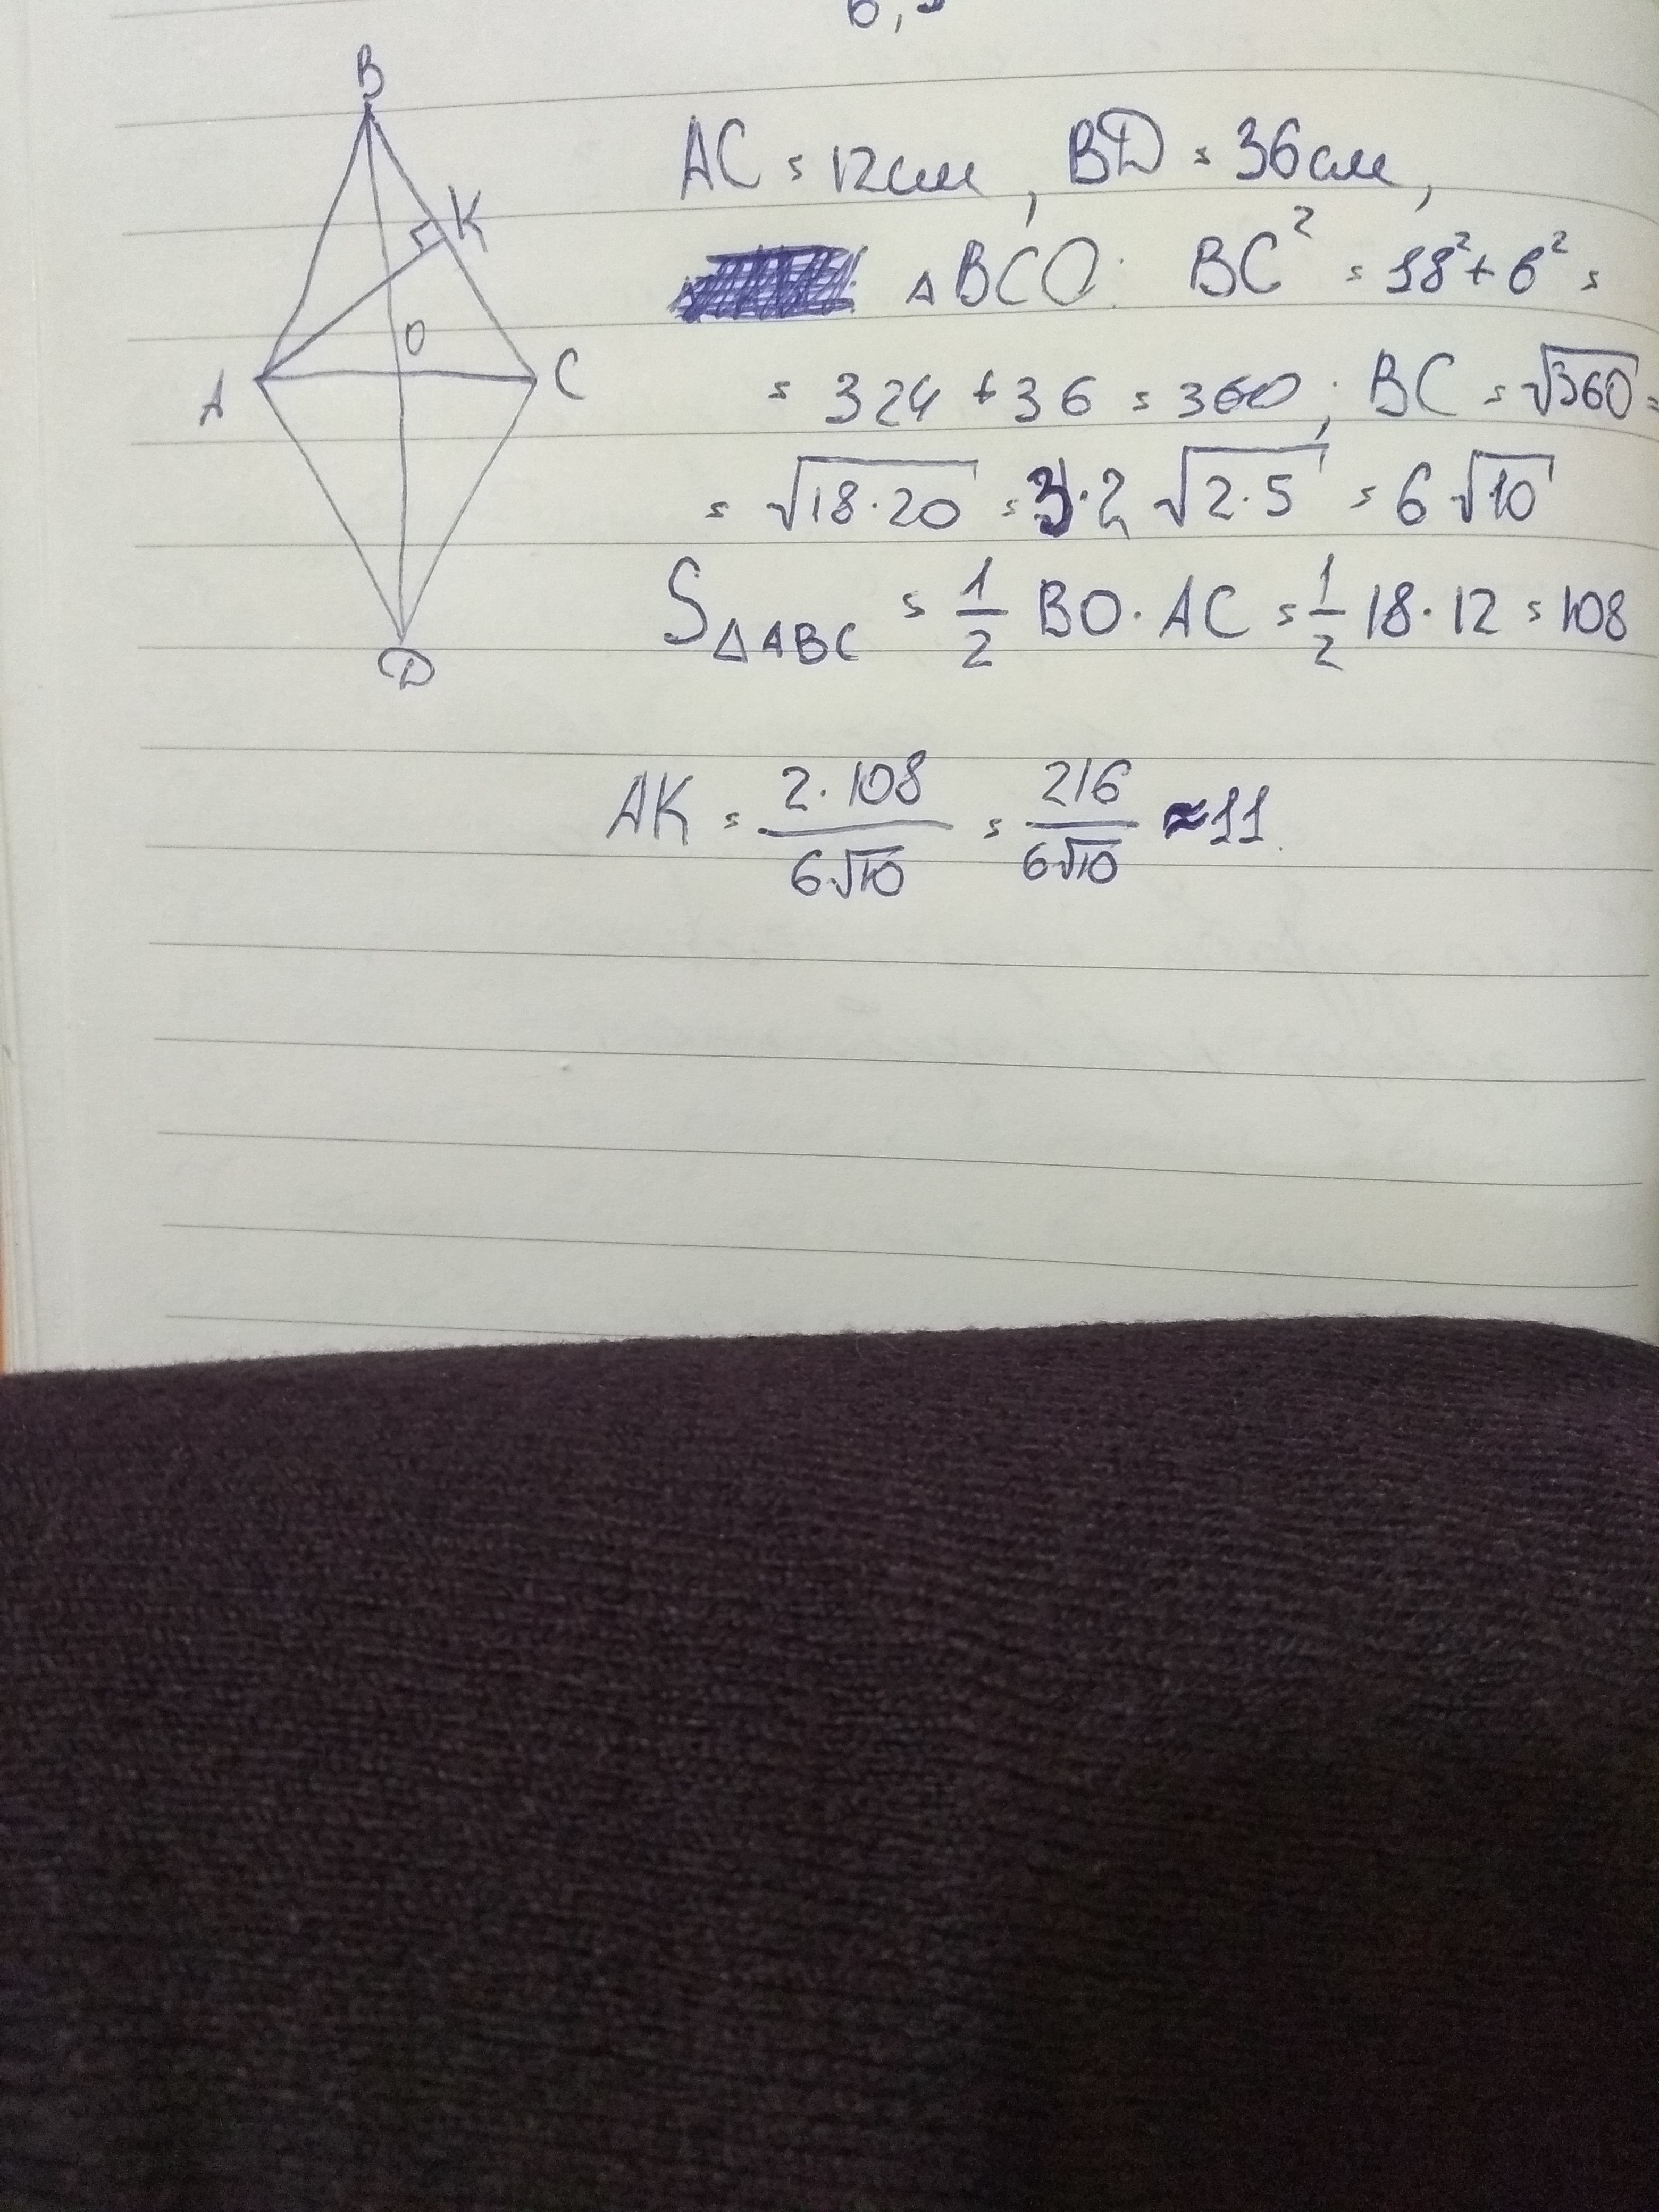 6,
B
K
O
A
C
D
AC = 12см, BD = 36см,
△BCO: BC² = 18² + 6² =
= 324 + 36 = 360; BC = √360 =
= √18·20 = 3·2 √2·5 = 6√10
S△ABC = 1/2 BO·AC = 1/2 18·12 = 108
AK = 2·108/6√10 = 216/6√10 ≈ 11.